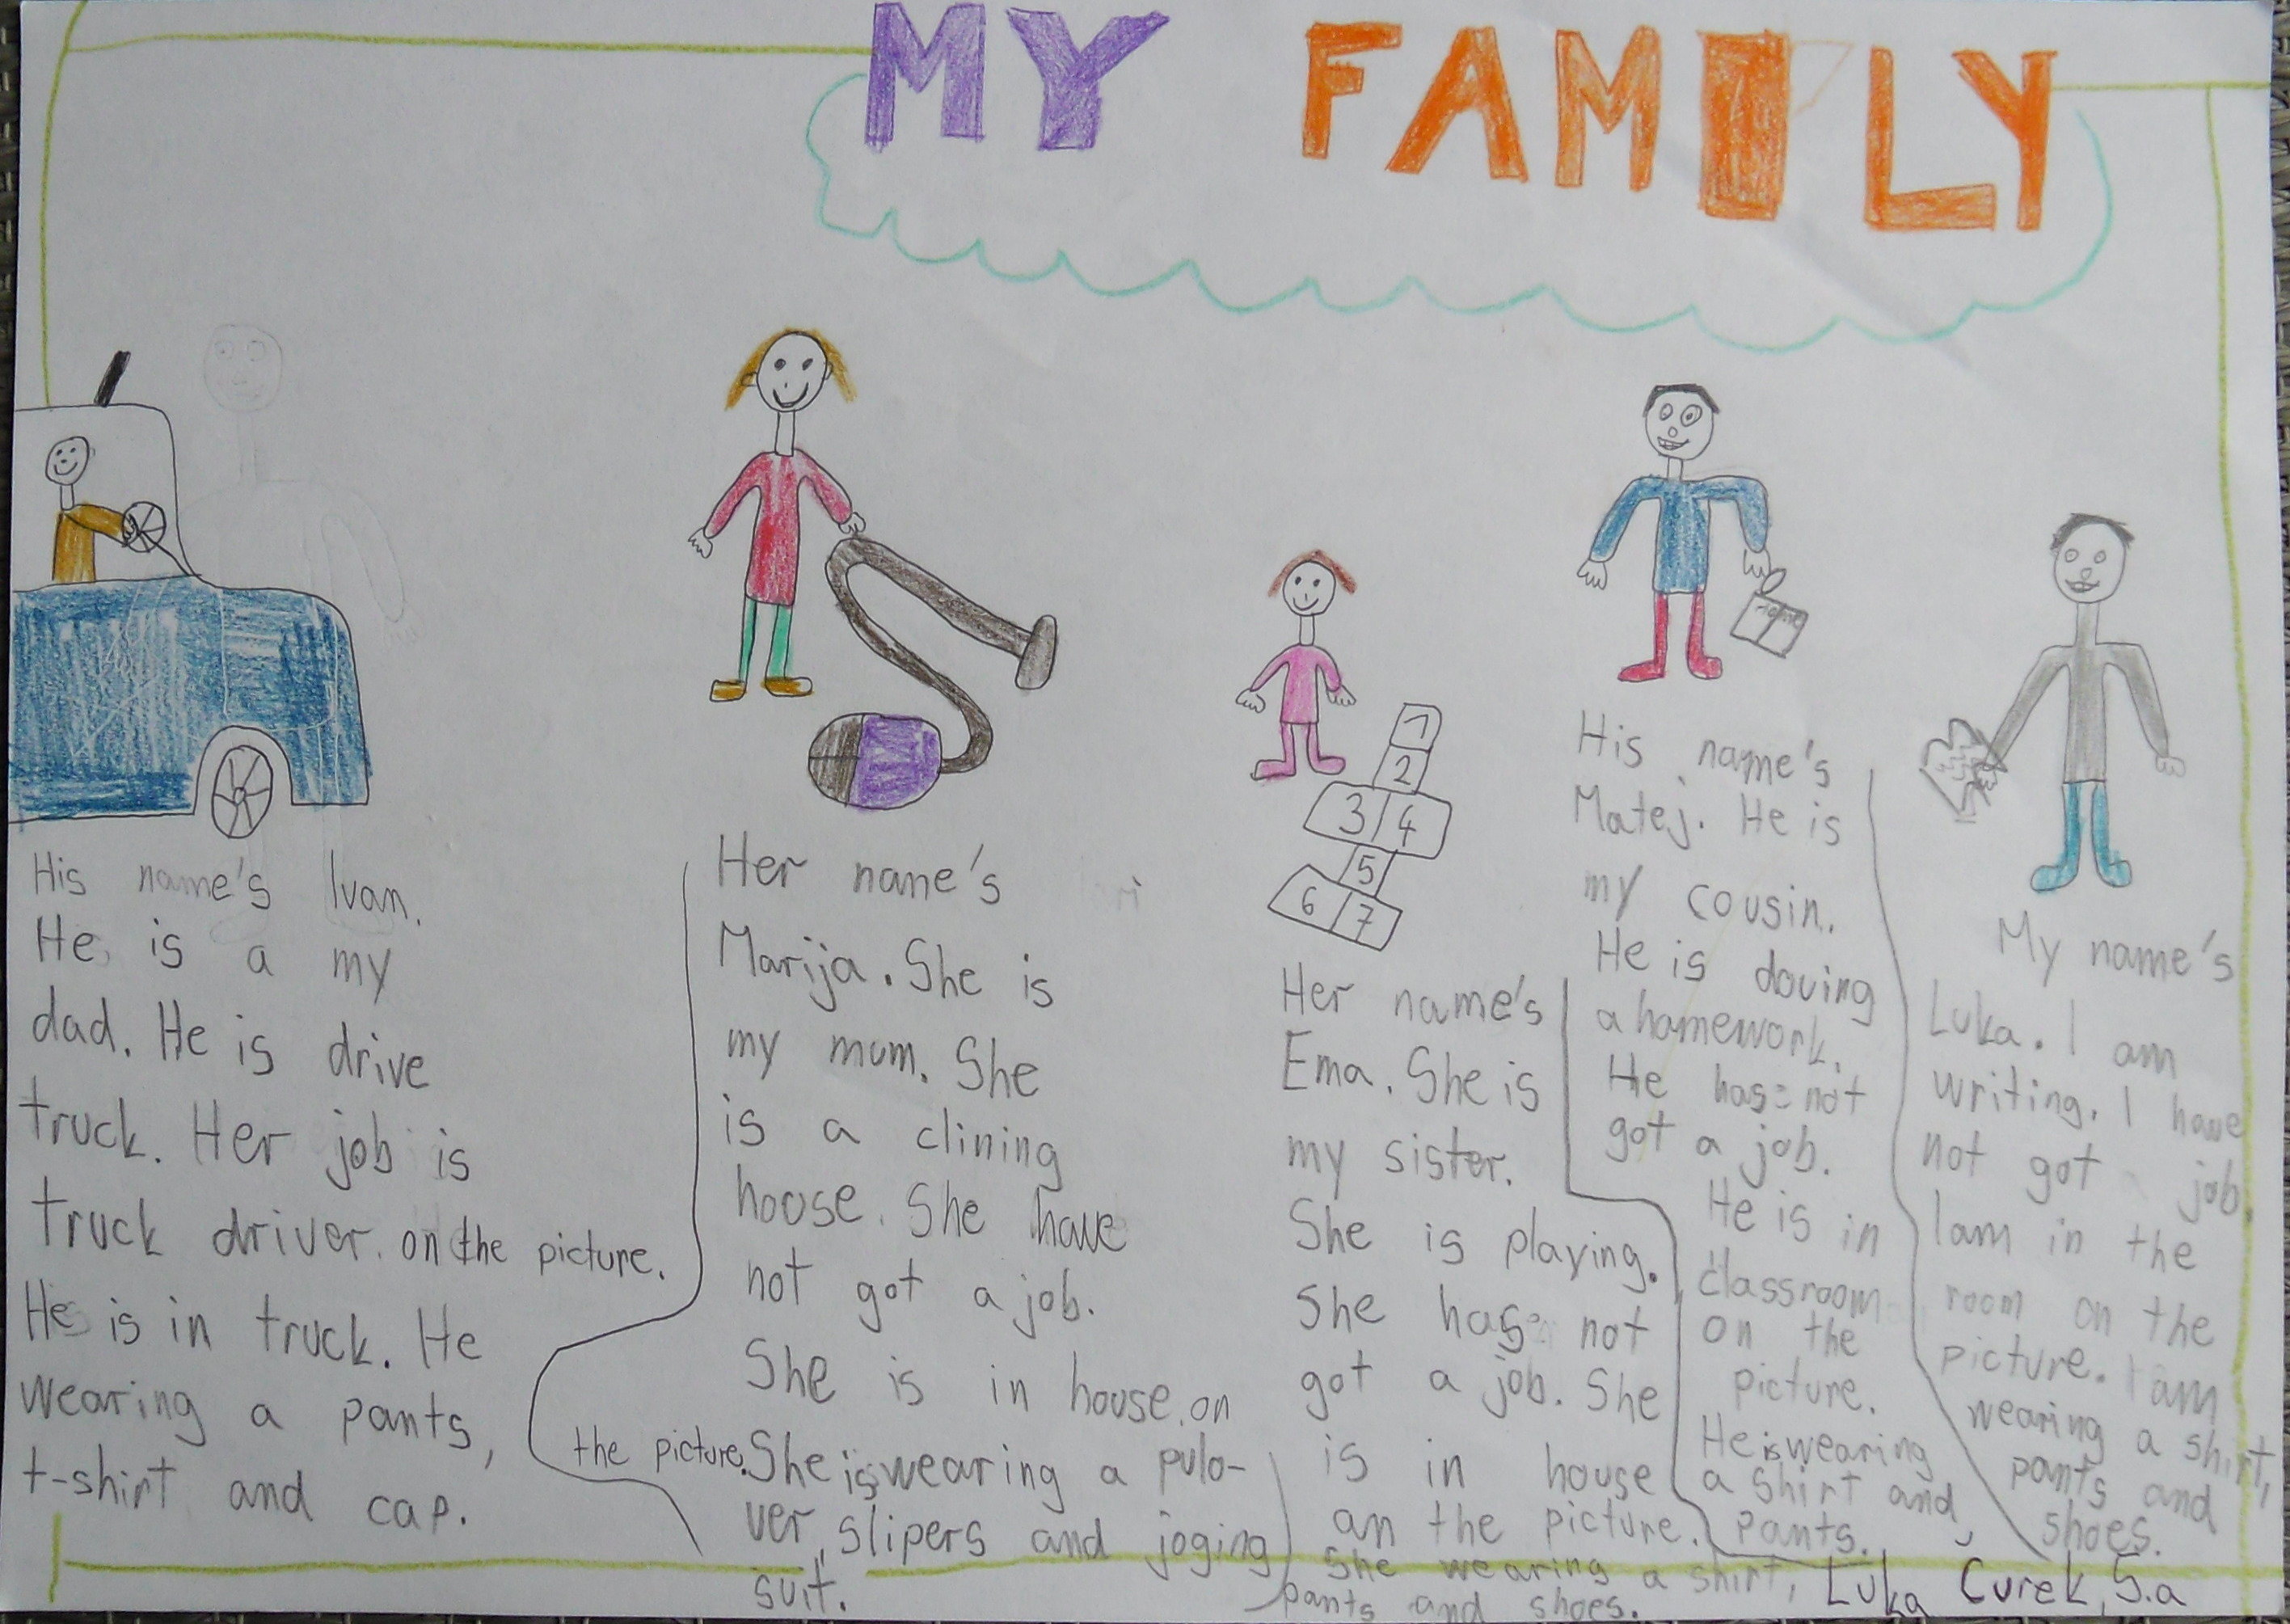 MY FAMILY
His name's Ivan.
He is a my
dad. He is drive
truck. Her job is
truck driver. on the picture.
He is in truck. He
wearing a pants,
t-shirt and cap.
Her name's
Marija. She is
my mum. She
is a clining
house. She have
not got a job.
She is in house. on
the picture. She is wearing a pulo-
ver, slipers and joging
suit.
1
2
3 4
5
6 7
Her name's
Ema. She is
my sister.
She is playing.
She has not
got a job. She
is in house
an the picture.
She wearing a shirt,
pants and shoes.
His name's
Matej. He is
my cousin.
He is douing
a homework.
He has not
got a job.
He is in
classroom
on the
picture.
He is wearing
a shirt and
pants.
My name's
Luka. I am
writing. I have
not got a job.
I am in the
room on the
picture. I am
wearing a shirt,
pants and
shoes.
Luka Čurek, 5.a